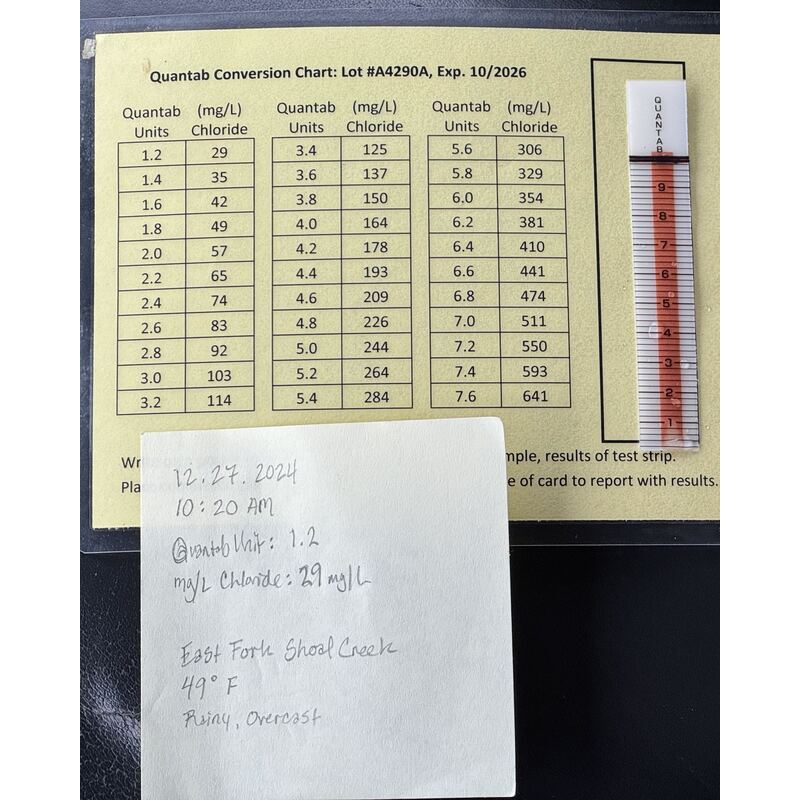 Quantab Conversion Chart: Lot #A4290A, Exp. 10/2026
Quantab (mg/L) Quantab (mg/L) Quantab (mg/L)
Units Chloride Units Chloride Units Chloride
1.2 29 3.4 125 5.6 306
1.4 35 3.6 137 5.8 329
1.6 42 3.8 150 6.0 354
1.8 49 4.0 164 6.2 381
2.0 57 4.2 178 6.4 410
2.2 65 4.4 193 6.6 441
2.4 74 4.6 209 6.8 474
2.6 83 4.8 226 7.0 511
2.8 92 5.0 244 7.2 550
3.0 103 5.2 264 7.4 593
3.2 114 5.4 284 7.6 641
QUANTAB
9
8
7
6
5
4
3
2
1
Wr mple, results of test strip.
Pla e of card to report with results.
12.27.2024
10:20 AM
Quantab Unit: 1.2
mg/L Chloride: 29 mg/L
East Fork Shoal Creek
49° F
Rainy, Overcast